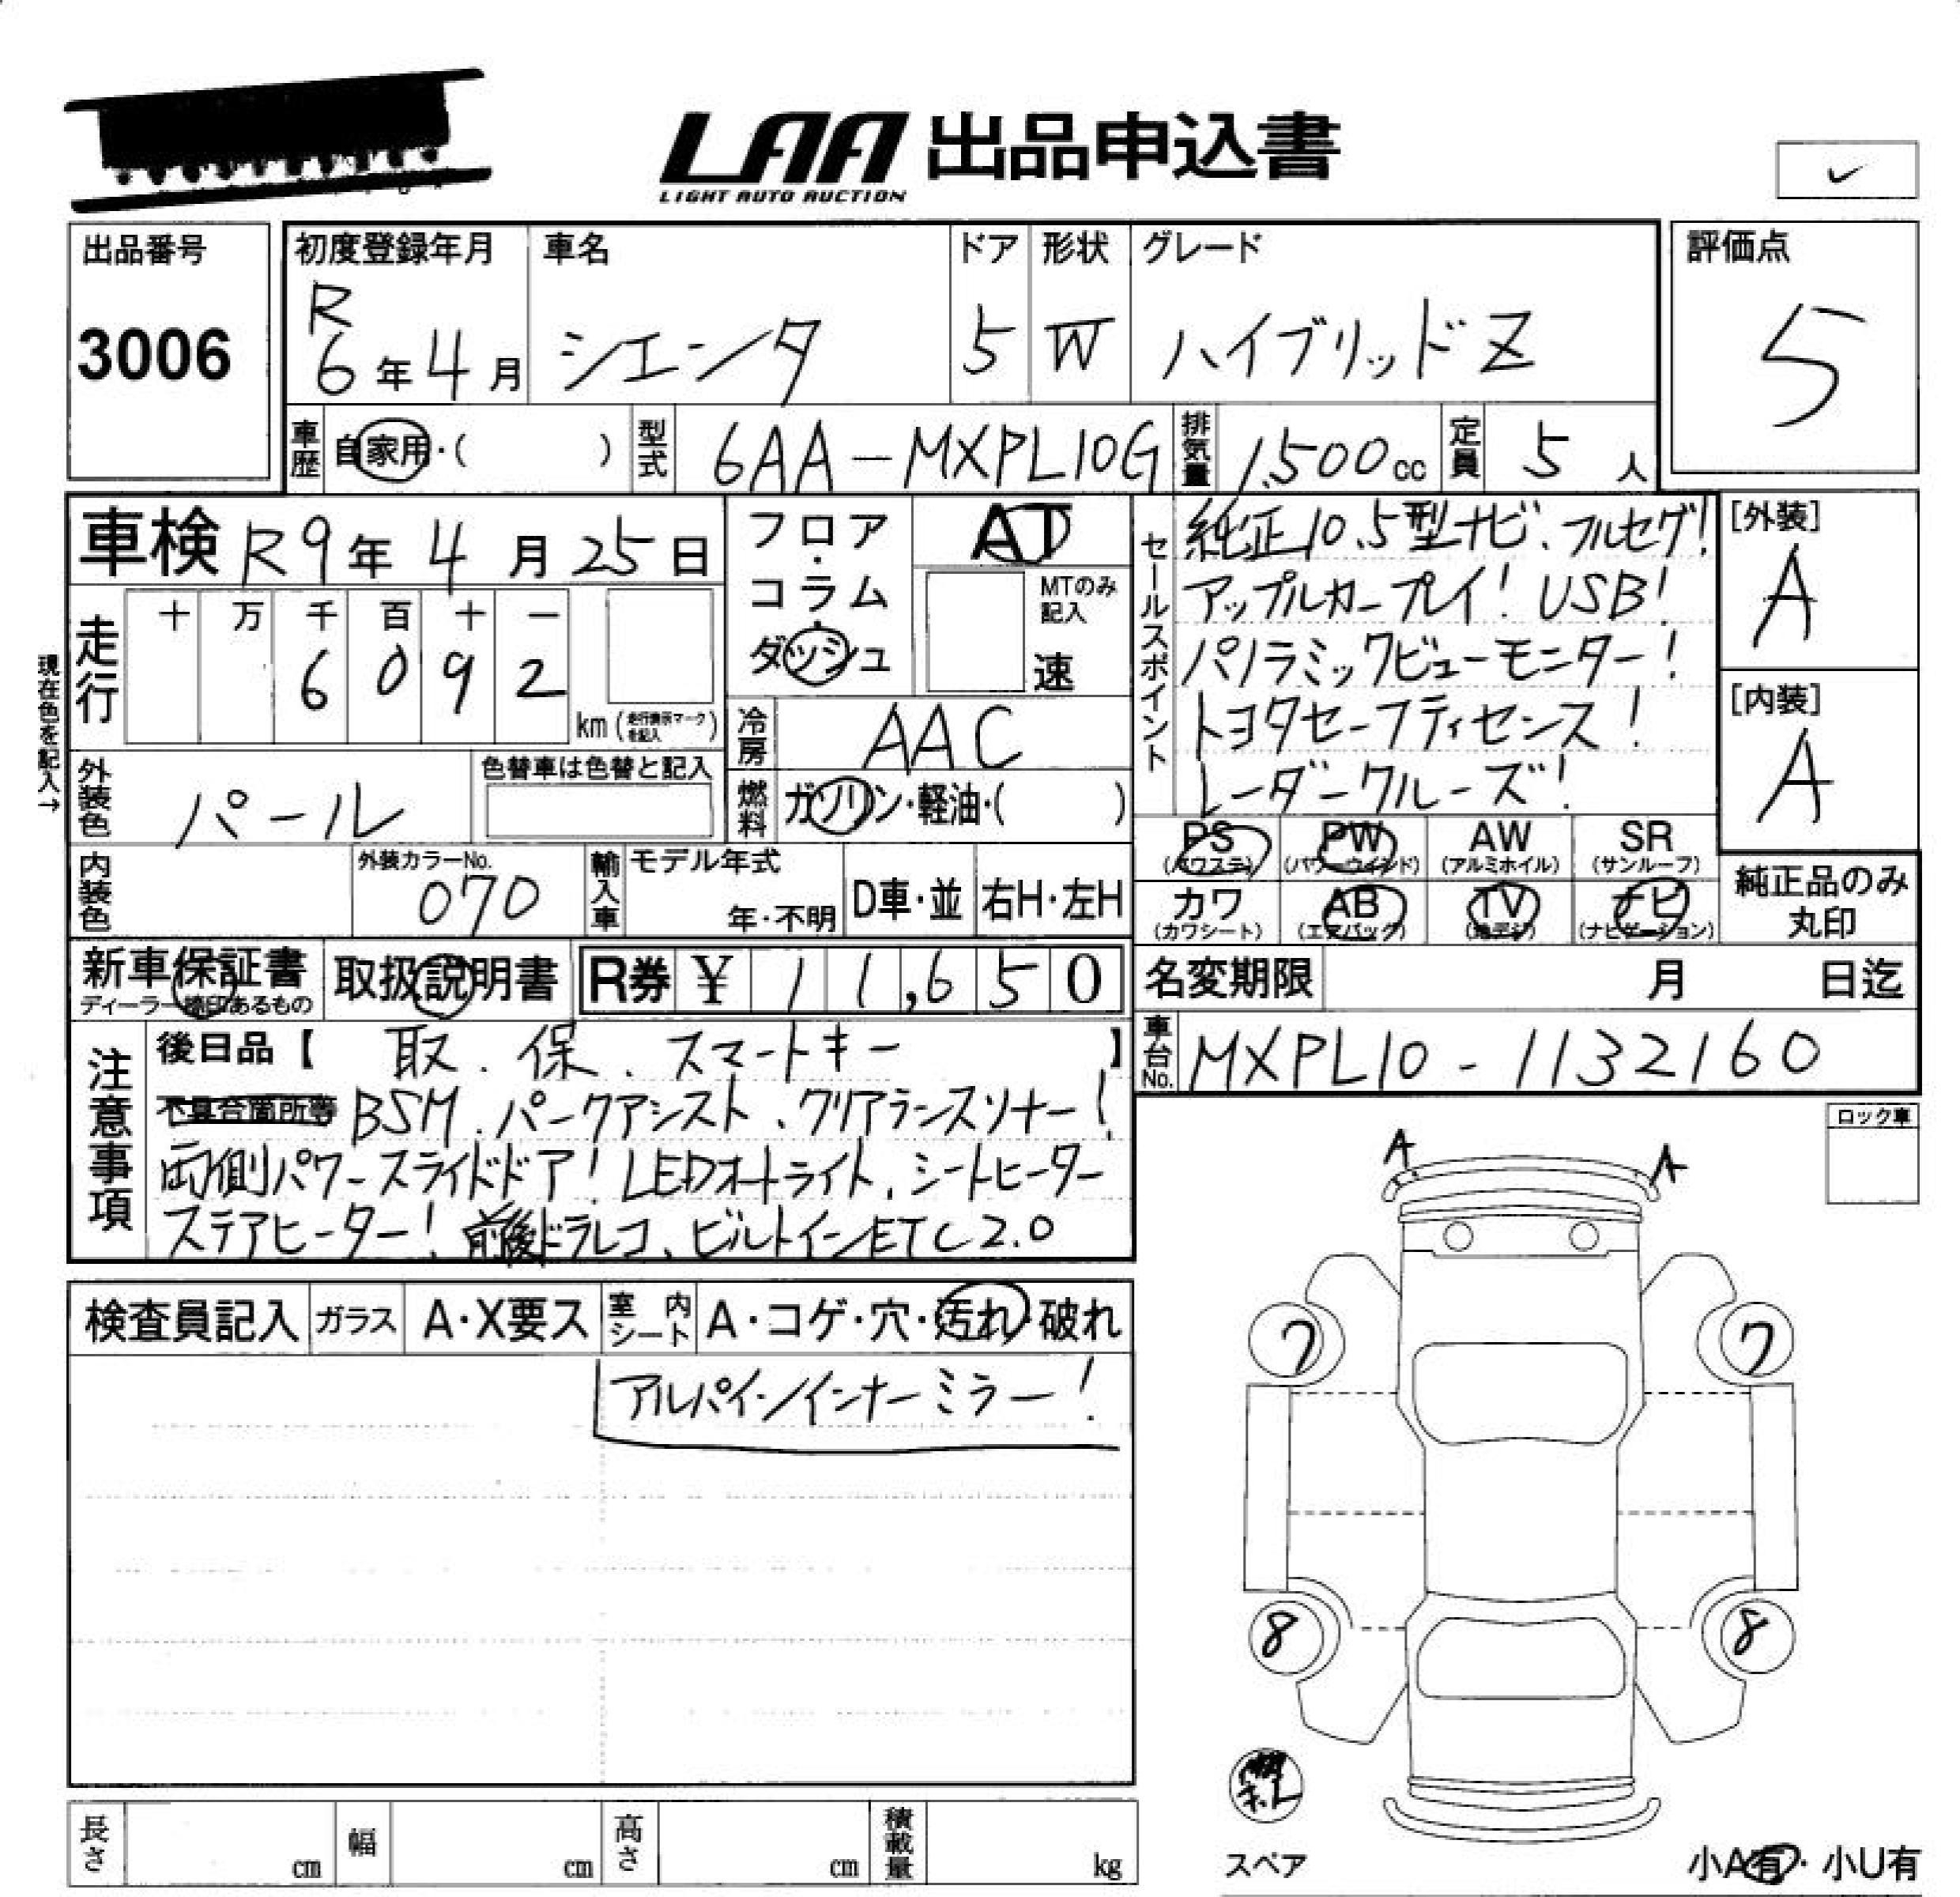 LAA 出品申込書
LIGHT AUTO AUCTION
✓
出品番号
3006
初度登録年月
R
6年4月
車名
シエンタ
ドア
5
形状
W
グレード
ハイブリッドZ
評価点
5
車歴
自家用・( )
型式
6AA-MXPL10G
排気量
1,500cc
定員
5人
車検 R9年4月25日
フロア・コラム・ダッシュ
AT
MTのみ記入
速
現在色を記入→
走行
十 万 千 百 十 一
6 0 9 2
km (走行表示マークを記入)
冷房
AAC
外装色
パール
色替車は色替と記入
燃料
ガソリン・軽油・( )
内装色
外装カラーNo.
070
輸入車
モデル年式
年・不明
D車・並
右H・左H
セールスポイント
純正10.5型ナビ、フルセグ!
アップルカープレイ! USB!
パノラミックビューモニター!
トヨタセーフティセンス!
レーダークルーズ!
[外装]
A
[内装]
A
PS PW AW SR
(パワステ) (パワーウィンド) (アルミホイル) (サンルーフ)
カワ AB TV ナビ
(カワシート) (エアバック) (地デジ) (ナビゲーション)
純正品のみ
丸印
新車保証書
ディーラー捺印あるもの
取扱説明書
R券 ¥ 11,650
名変期限 月 日迄
車台No.
MXPL10-1132160
注意事項
後日品【 取、保、スマートキー 】
不具合箇所等 BSM、パークアシスト、クリアランスソナー!
両側パワースライドドア! LEDオートライト、シートヒーター
ステアヒーター! 前後ドラレコ、ビルトインETC2.0
ロック車
A A
検査員記入 ガラス A・X要ス 室内シート A・コゲ・穴・汚れ・破れ
アルパインインナーミラー!
7 7
8 8
スペア
小A有・小U有
長さ cm 幅 cm 高さ cm 積載量 kg